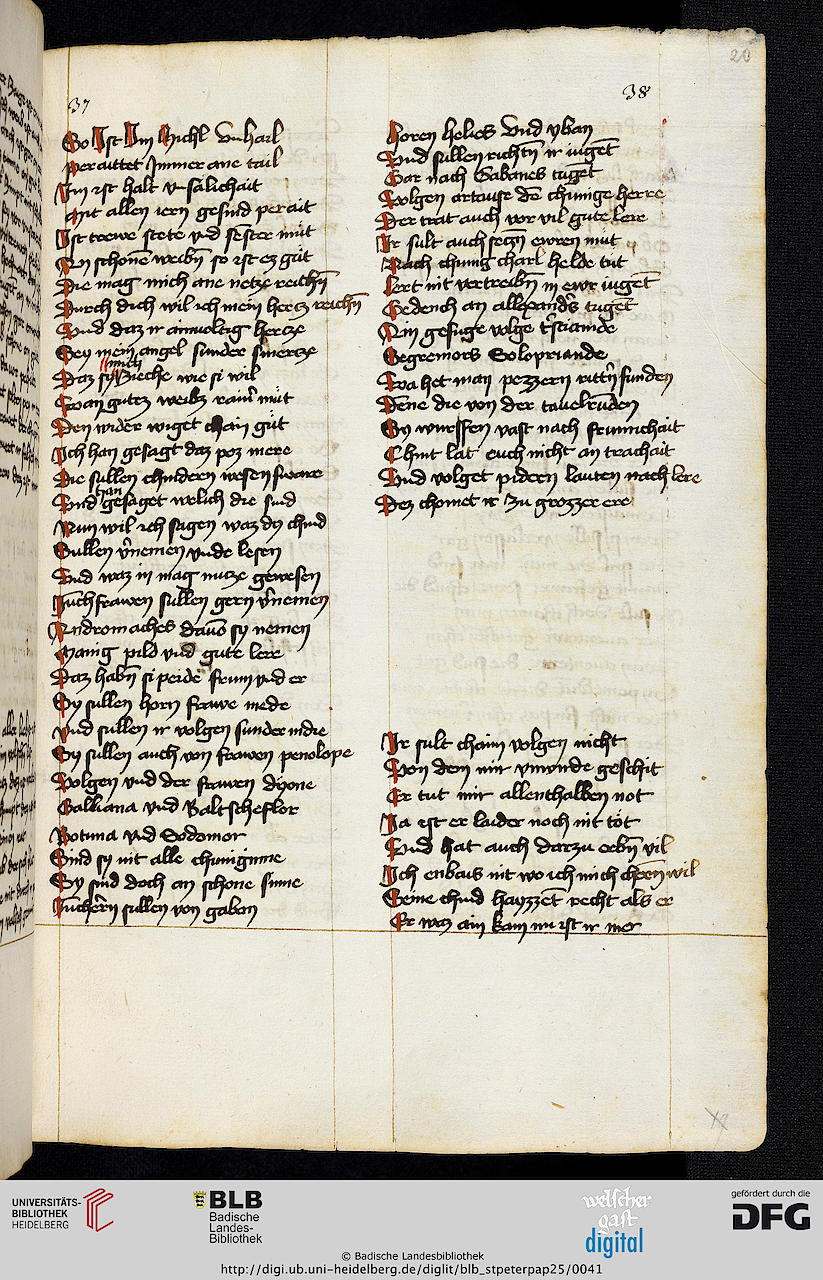 37
So Ist Im Michl Vnhail
Per aittet Immer ane tail
Im ist halt vnsalichait
Mit allen iern gesind perait
Ist trewe stete vnd senfter müt
An schonē weibn̄ so ist ez güt
Die mag mich ane netze reichn̄
Durch dich wil ich mein hercz reichn̄
Vnd daz ir ainuoltig hercze
Sey mein angel sunder smercze
Daz sy mich zieche wie si wil
Wan gutez weibz rain̄ müt
Den wider wiget chain güt
Ich han gesagt daz poz mere
Die sullen chindern wesen swäre
Vnd han gesaget welich die sind
Nun wil ich sagen waz dy chind
Sullen v̄nemen vnde lesen
Vnd waz in mag nutze gewesen
Iunchfrawen sullen gern v̄nemen
Andromaches dauō sy nemen
Manig pild vnd gute lere
Daz habn̄ si peide frum vnd er
Sy sullen horn frawe mede
Vnd sullen ir volgen sunder
Sy sullen auch von frawen penolope
Volgen vnd der frawen
Galliana vnd Baltscheflor
Botuna vnd Sodamor
Sind sy nit alle chuniginne
Sy sind doch an schone sinne
Iuncher̄n sullen von gaban
38
20
horen helies vnd yban
Vnd sullen richtn̄ ir iugēt
Gar nach Gabanes tugēt
Volgen artause dē chunige herre
Der trat auch vor vil gute lere
Ir sult auch segn̄ ewren müt
Nach chunig charl helde tut
Lert nit vertreibn̄ in ewr iugēt
Gedench an allexand̄s tugēt
An gefuge volge
Segremors Solopriande
Wa het man pezzern rittn̄ funden
Dēne die von der tauelrunden
Sy wurffen vast nach frumichait
Chint lat euch nicht an trachait
Vnd volget pidern lauten nach lere
Dez chomet ir zu grozzer ere
Ir sult chaim volgen nicht
Von dem mir vnwirde geschit
Er tut mir allenthalben not
Ia ist er laider noch nit töt
Vnd hat auch darzu erbn̄ vil
Ich enbais nit wo ich mich chern̄ wil
Seine chind hayzzēt recht als er
Er waz ain kain nu ist ir mer
UNIVERSITÄTS-
BIBLIOTHEK
HEIDELBERG
BLB
Badische
Landes-
Bibliothek
welscher
gast
digital
gefördert durch die
DFG
© Badische Landesbibliothek
http://digi.ub.uni-heidelberg.de/diglit/blb_stpeterpap25/0041